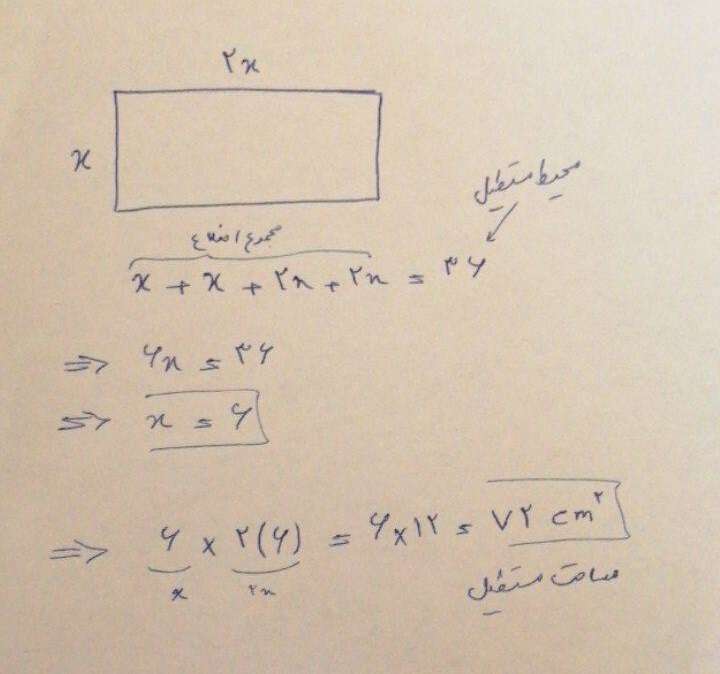 ۲x
x
محیط مستطیل
مجموع اضلاع
x + x + ۲x + ۲x = ۳۶
=> ۶x = ۳۶
=> x = ۶
=> ۶ × ۲(۶) = ۶×۱۲ = ۷۲ cm²
x ۲x
مساحت مستطیل